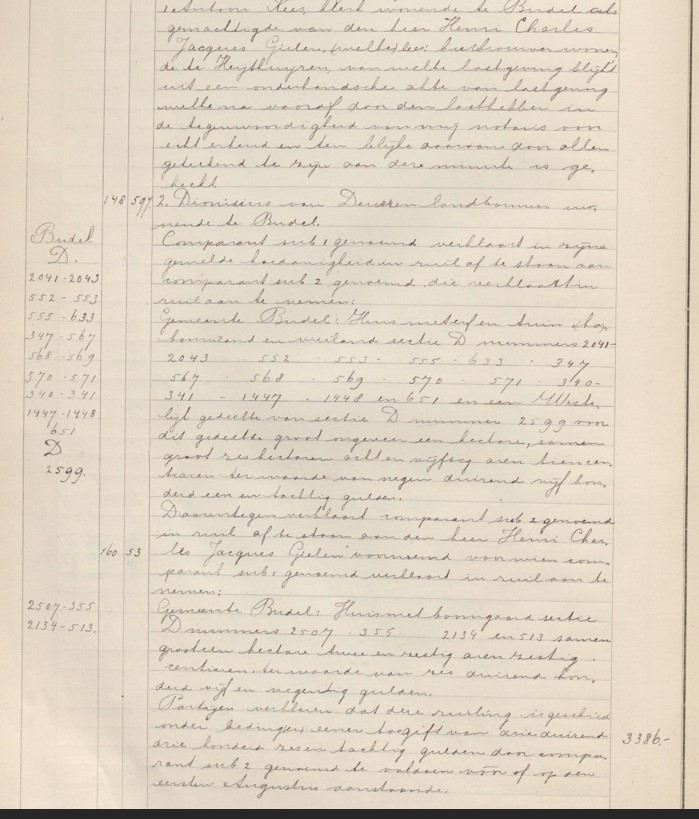 1. Antoon Kees, klerk wonende te Budel als
gemachtigde van den heer Henri Charles
Jacques Gielen, bierbrouwer wonen
de te Heijthuijzen, van welke lastgeving blijkt
uit een onderhandsche akte van lastgeving
welke na vooraf door den lasthebber in
de tegenwoordigheid van mij notaris voor
echt erkend en ten blijke daarvan door allen
geteekend te zijn aan deze minute is ge-
hecht.
148 597 2. Dionisius van Deursen landbouwer wo-
nende te Budel.
Budel
D.
2041-2043
552 - 553
555 - 633
347 - 567
568 - 569
570 - 571
340 - 341
1447-1448
651
D
2599.
Comparant sub 1 genoemd verklaart in zijne
gemelde hoedanigheid in ruil af te staan aan
comparant sub 2 genoemd die verklaart in
ruil aan te nemen:
Gemeente Budel: Huis met erf en tuin
bouwland en weiland sectie D nummers 2041-
2043 - 552 - 553 - 555 - 633 - 347
567 - 568 - 569 - 570 - 571 - 340 -
341 - 1447 - 1448 en 651 en een Weste-
lijk gedeelte van sectie D nummer 2599 voor
dit gedeelte groot ongeveer een hectare, samen
groot zes hectaren acht en vijftig aren tien cen
tiaren ter waarde van negen duizend vijf hon-
derd een en tachtig gulden.
Daarentegen verklaart comparant sub 2 genoemd
in ruil af te staan aan den heer Henri Char-
160 53 les Jacques Gielen voornoemd voor wien com-
parant sub 1 genoemd verklaart in ruil aan te
nemen:
2507-355
2134-513.
Gemeente Budel: Huis met boomgaard sectie
D nummers 2507 - 355 2134 en 513 samen
groot een hectare twee en zestig aren zestig
centiaren, ter waarde van zes duizend hon-
derd vijf en negentig gulden.
Partijen verklaren dat deze ruiling is geschied
onder beding eener toegift van drie duizend
drie honderd zes en tachtig gulden door compa- 3386,-
rant sub 2 genoemd te voldoen vóór of op den
eersten Augustus aanstaande.